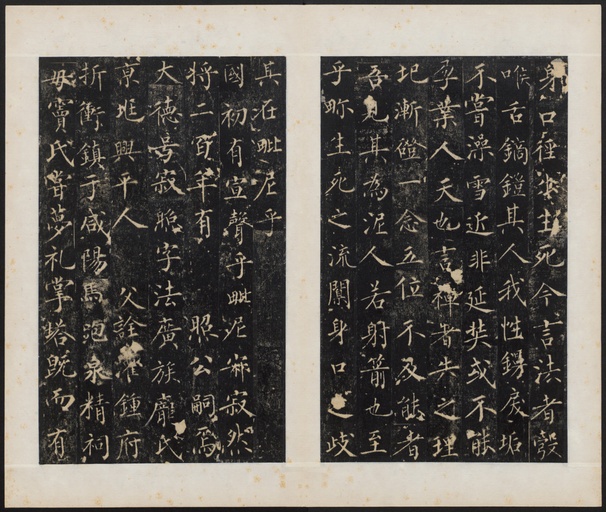 身口徑生死今言法者觳
喉舌鍋鎧其人我性鎸垢
不嘗澡雪近非延奘或不能
孚業人天也言禪者失之理
圯漸磴一念五位不及能者
吾見其為泥人若射箭也至
乎眎生死之流關身口之歧
其在毗尼乎
國初有宣聲乎毗泥寂然
將二百年有 照公嗣焉
大德号寂照字法廣族龐氏
京兆興平人 父詮府
折衝鎮于咸陽馬泡泉精祠
母竇氏嘗夢礼掌塔既而有